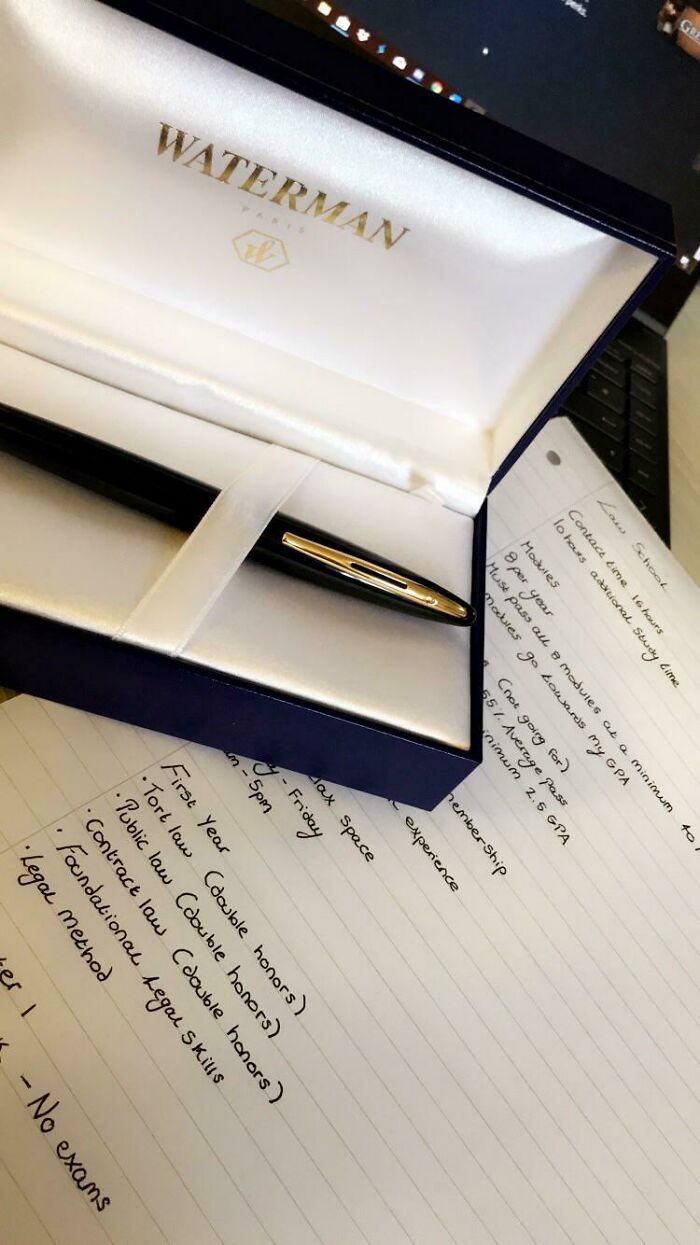 WATERMAN
PARIS
Law School
Contact time 16 hours
10 hours additional study time
Modules
8 per year
Must pass all 8 modules at a minimum 40
modules go towards my GPA
(not going for)
55% Average pass
minimum 2.5 GPA
membership
experience
space
- Friday
- 5pm
First Year
• Tort law (double honors)
• Public law (double honors)
• Contract law (double honors)
• Foundational Legal Skills
• Legal method
1
- No exams